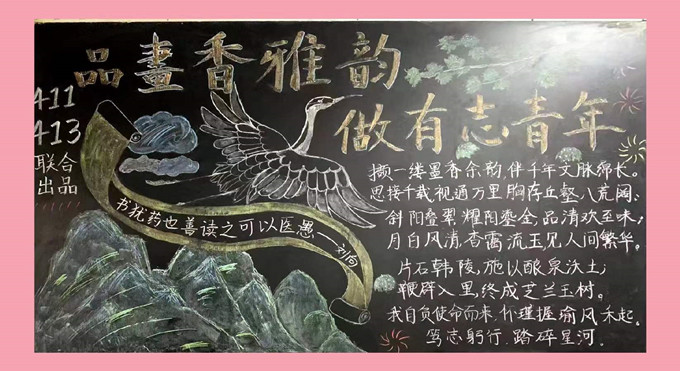 品畫香雅韵
做有志青年
411
413
联合
出品
书犹药也善读之可以医愚——刘向
撷一缕墨香余韵,伴千年文脉绵长。
思接千载,视通万里,胸存丘壑八荒阔;
斜阳叠翠,耀阳鎏金,品清欢至味;
月白风清,杳霭流玉,见人间繁华。
片石韩陵,施以酿泉沃土;
鞭辟入里,终成芝兰玉树。
我自负使命而来,怀瑾握瑜风禾起,
笃志躬行,踏碎星河.